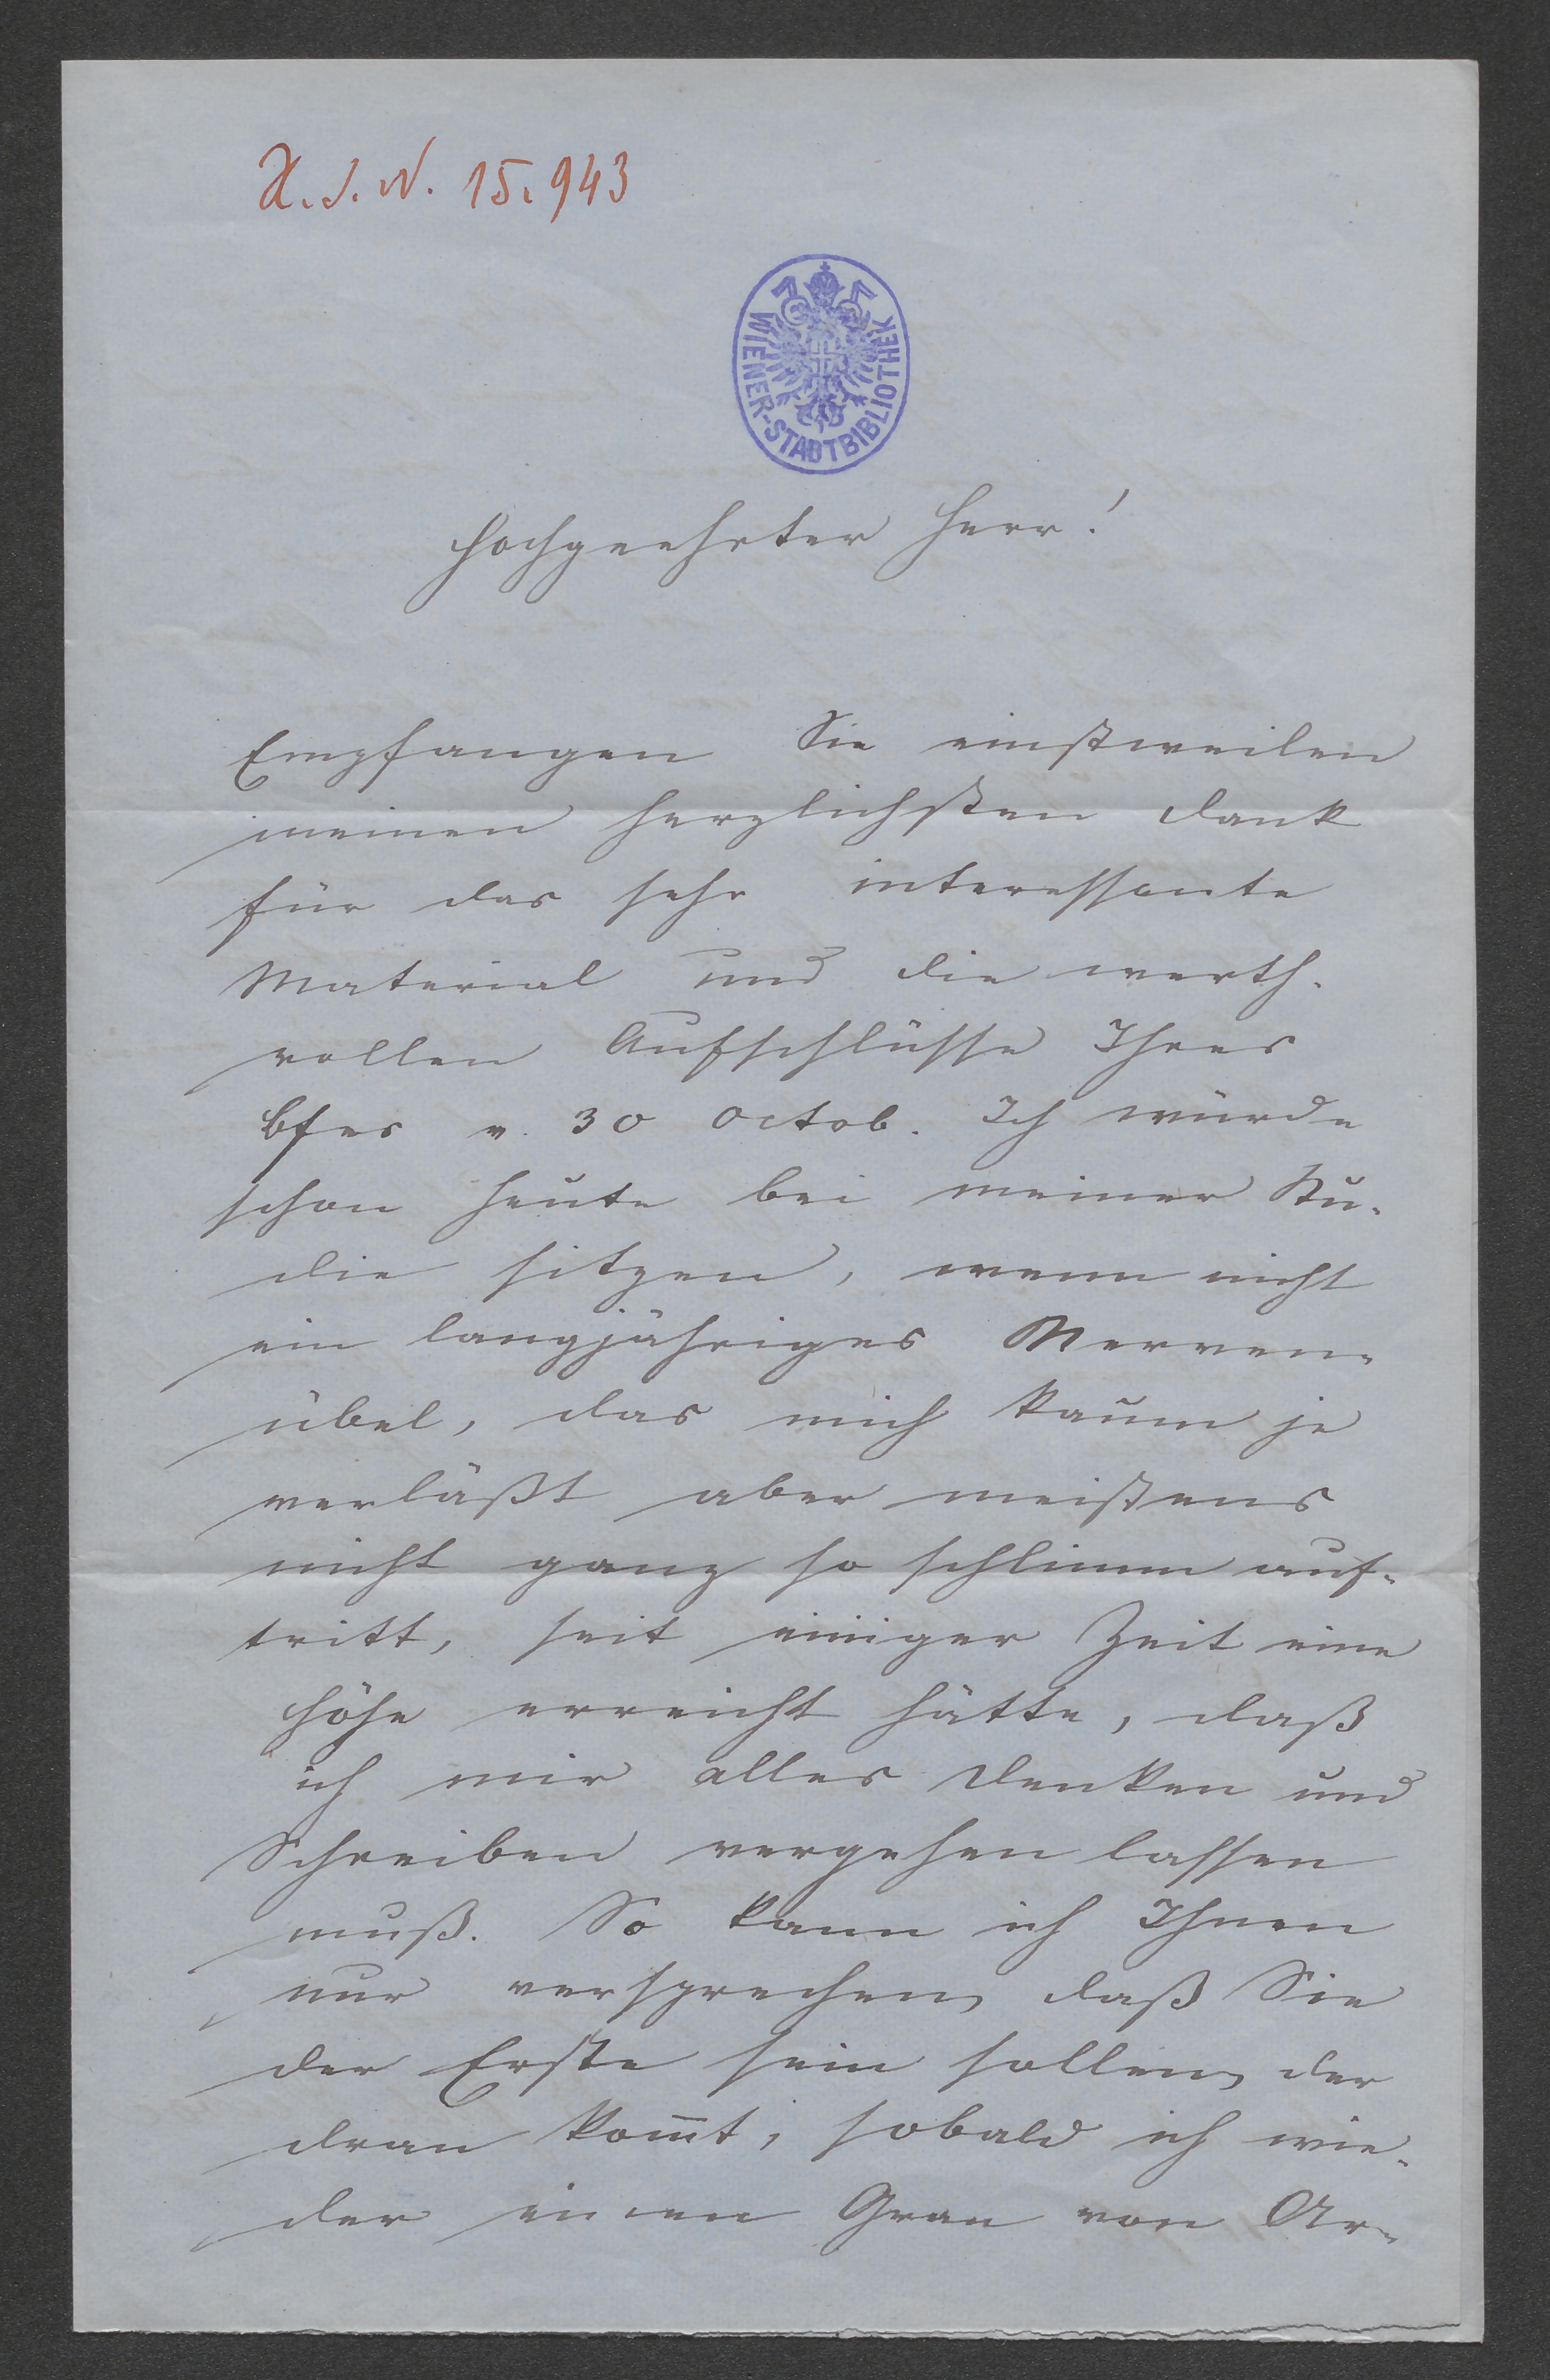 H.I.N. 15.943
WIENER-STADTBIBLIOTHEK
Hochgeehrter Herr!
Empfangen Sie einstweilen
meinen herzlichsten Dank
für das sehr interessante
Material und die werth-
vollen Aufschlüsse Ihres
Bfes v. 30 Octob. Ich würde
schon heute bei meiner Stu-
die sitzen, wenn nicht
ein langjähriges Nerven-
übel, das mich kaum je
verläßt aber meistens
nicht ganz so schlimm auf-
tritt, seit einiger Zeit eine
Höhe erreicht hätte, daß
ich mir alles Denken und
Schreiben vergehen lassen
muß. So kann ich Ihnen
nur versprechen, daß Sie
der Erste sein sollen, der
dran kom̅t, sobald ich wie-
der einen Gran von Ar-